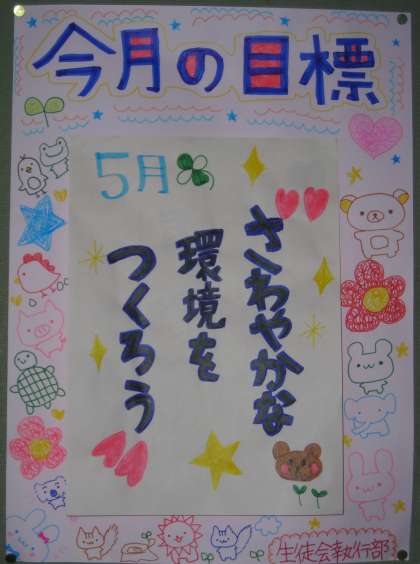 今月の目標
5月
さわやかな
環境を
つくろう
生徒会執行部